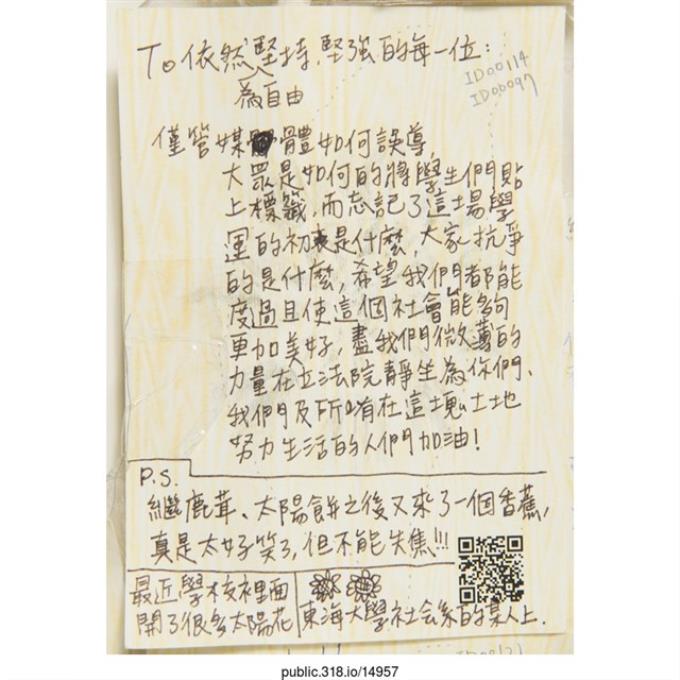 To 依然堅持,堅強的每一位:
為自由
ID00114
ID00097
僅管媒體如何誤導,
大眾是如何的將學生們貼
上標籤,而忘記了這場學
運的初衷是什麼,大家抗爭
的是什麼,希望我們都能
度過且使這個社會能夠
更加美好,盡我們微薄的
力量在立法院靜坐為你們、
我們及所有在這塊土地
努力生活的人們加油!
P.S.
繼鹿茸、太陽餅之後又來了一個香蕉,
真是太好笑了,但不能失焦!!!
最近學校裡面
開了很多太陽花
東海大學社会系的某人上.
public.318.io/14957